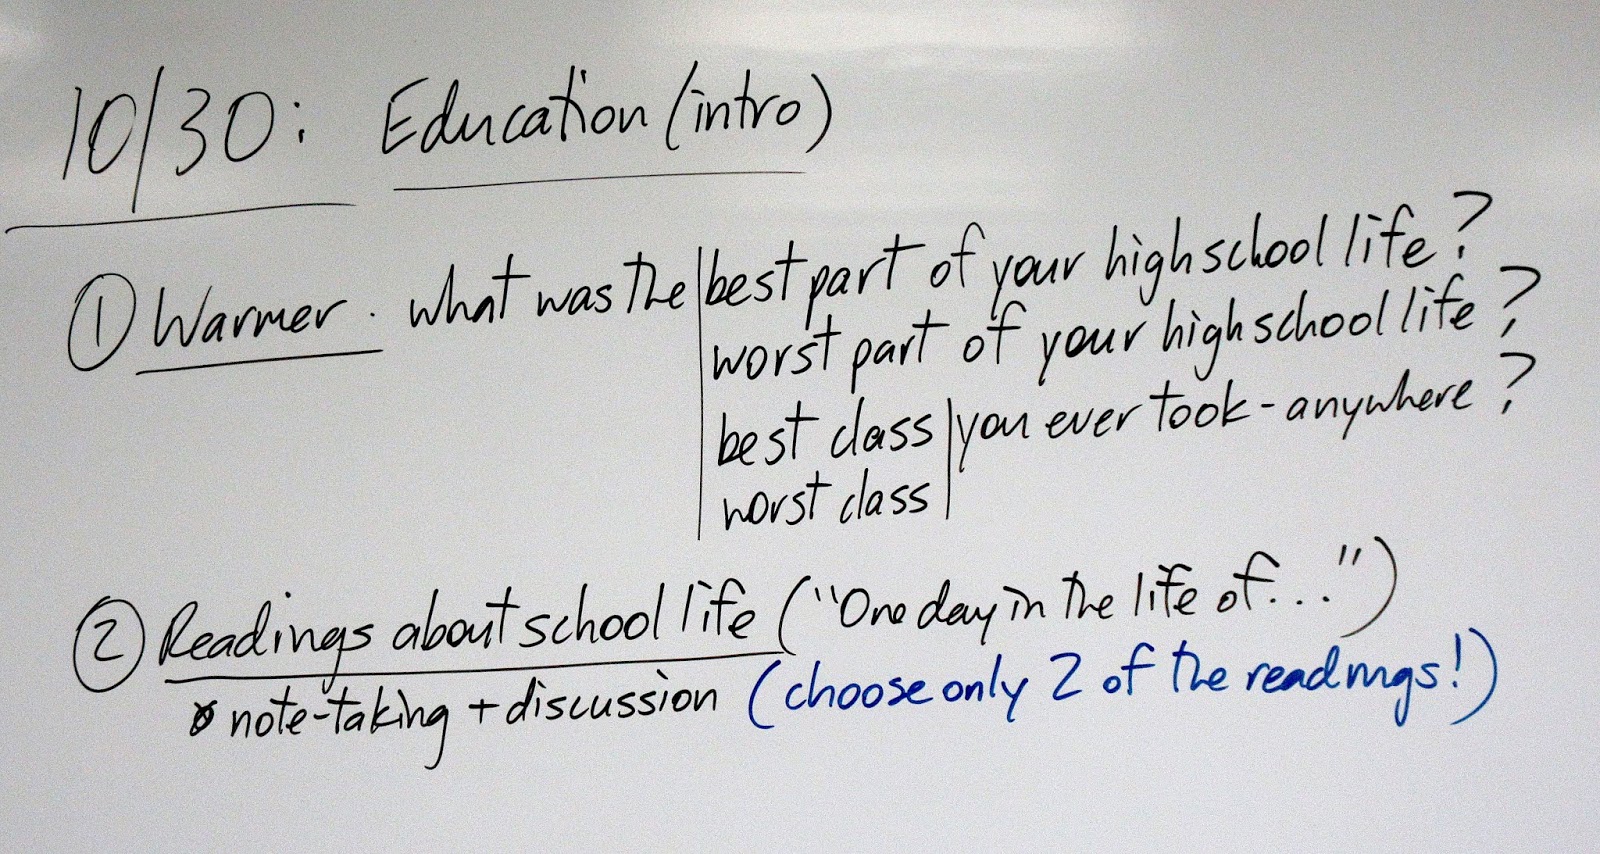 10/30: Education (intro)
① Warmer. what was the best part of your high school life?
worst part of your high school life?
best class you ever took - anywhere?
worst class
② Readings about school life ("One day in the life of...")
* note-taking + discussion (choose only 2 of the readings!)